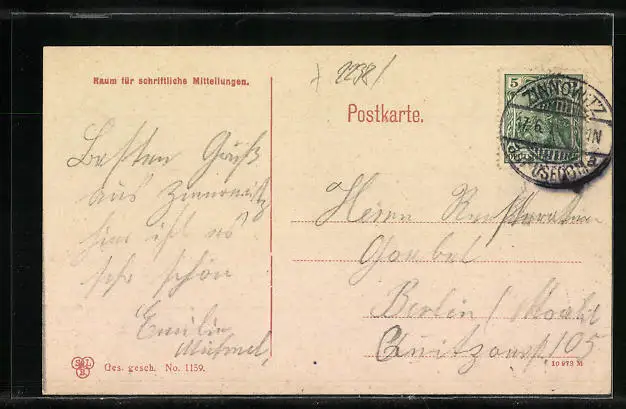 Raum für schriftliche Mitteilungen.
Besten Gruß
aus Zinnowitz
hier ist es
sehr schön
Emilie
Ges. gesch. No. 1159.
2298
Postkarte.
5
ZINNOWITZ
17.6
N
USEDOM
Herrn
Goebel
Berlin / Moabit
Quitzowst 105
10 973 M